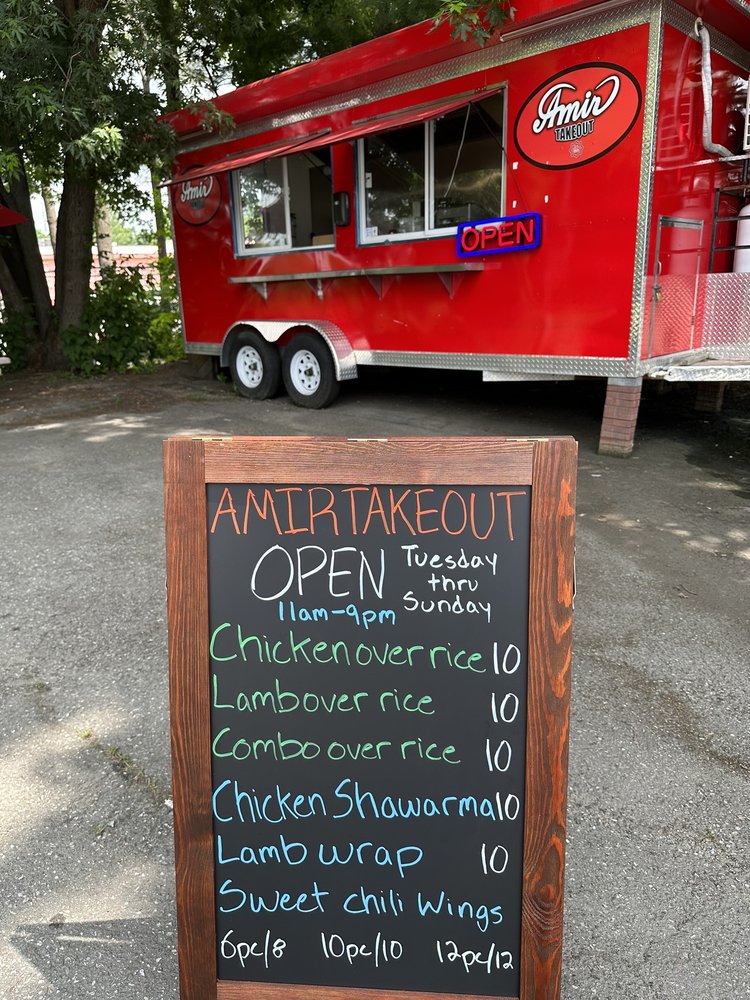 Amir
TAKEOUT
Amir
OPEN
AMIR TAKEOUT
OPEN Tuesday thru Sunday
11am-9pm
Chicken over rice 10
Lamb over rice 10
Combo over rice 10
Chicken Shawarma 10
Lamb wrap 10
Sweet chili Wings
6pc/8 10pc/10 12pc/12